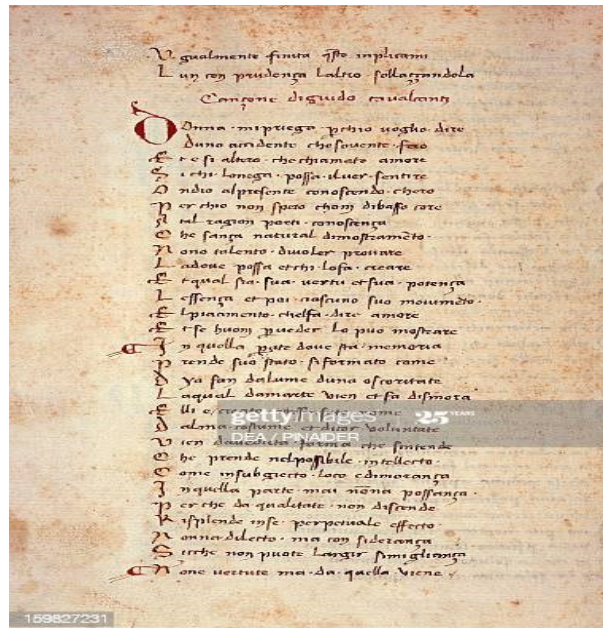 Vgualmente finita q̃sto inplicami
Lun con prudença laltro sollaççandola
Cançone diguido cavalcanti
Donna·mipriega pchio voglio·dire
Duno accidente chesovente·fero
Et e si altero·chechiamato amore
Si chi lonega·possa·iluer·sentire
Ondio alpresente conoscendo·chero
Per chio non spero chom̃ dibasso core
A tal ragion porti·conoscença
Che sança natural dimostramẽto·
Nono talento·diuoler prouare
Ladoue possa etchi·losa·creare
Et qual sia·sua·vertu etsua·potença
Lessença et poi·ciascuno suo mouimẽto·
El piacimento·chelfa·dire amore
Et se huom̃ p ueder Lo puo mostrare
In quella pate doue sta·memoria
Prende suo stato·siformato come
Dya fan dalume duna oscuritate
Laqual damarte vien et fa dismora
Elli e
Dalma costume et dicor voluntate
Vien daueduta forma che sintende
Che prende nelpossibile·intellecto·
Come insubgiecto·loco edimorança
In quella parte mai nona possança·
Per che da qualitate·non discende
Risplende inse·perpetuale effecto·
Non na dilecto·ma con siderança
Sicche non puote Largir simigliança
None vertute ma·da·quella viene
gettyimages 25 YEARS
DEA / PINAIDER
159827231